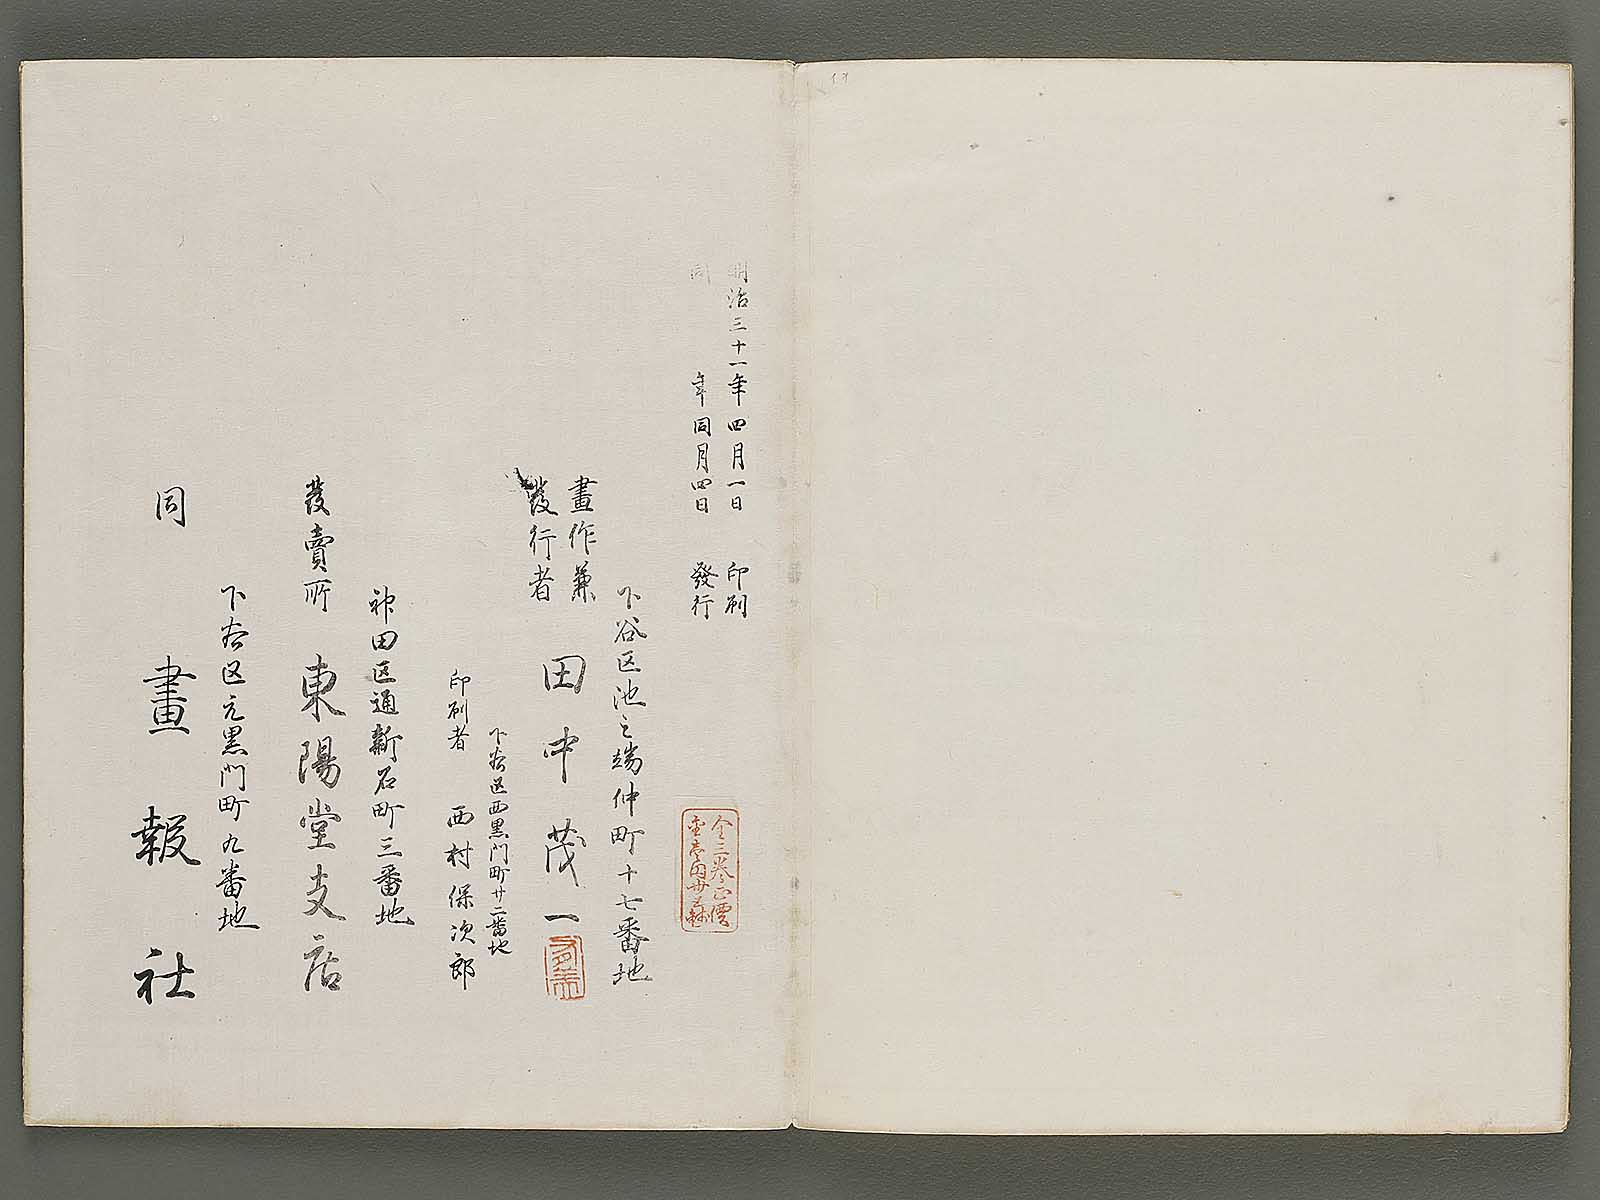 明治三十一年四月一日 印刷
同 年同月四日 發行
全三巻正價
金壱円廿五銭
下谷区池之端仲町十七番地
畫作兼
發行者
田中茂一
下谷区西黒門町廿二番地
印刷者 西村保次郎
神田区通新石町三番地
發賣所 東陽堂支店
下谷区元黒門町九番地
同 畫報社